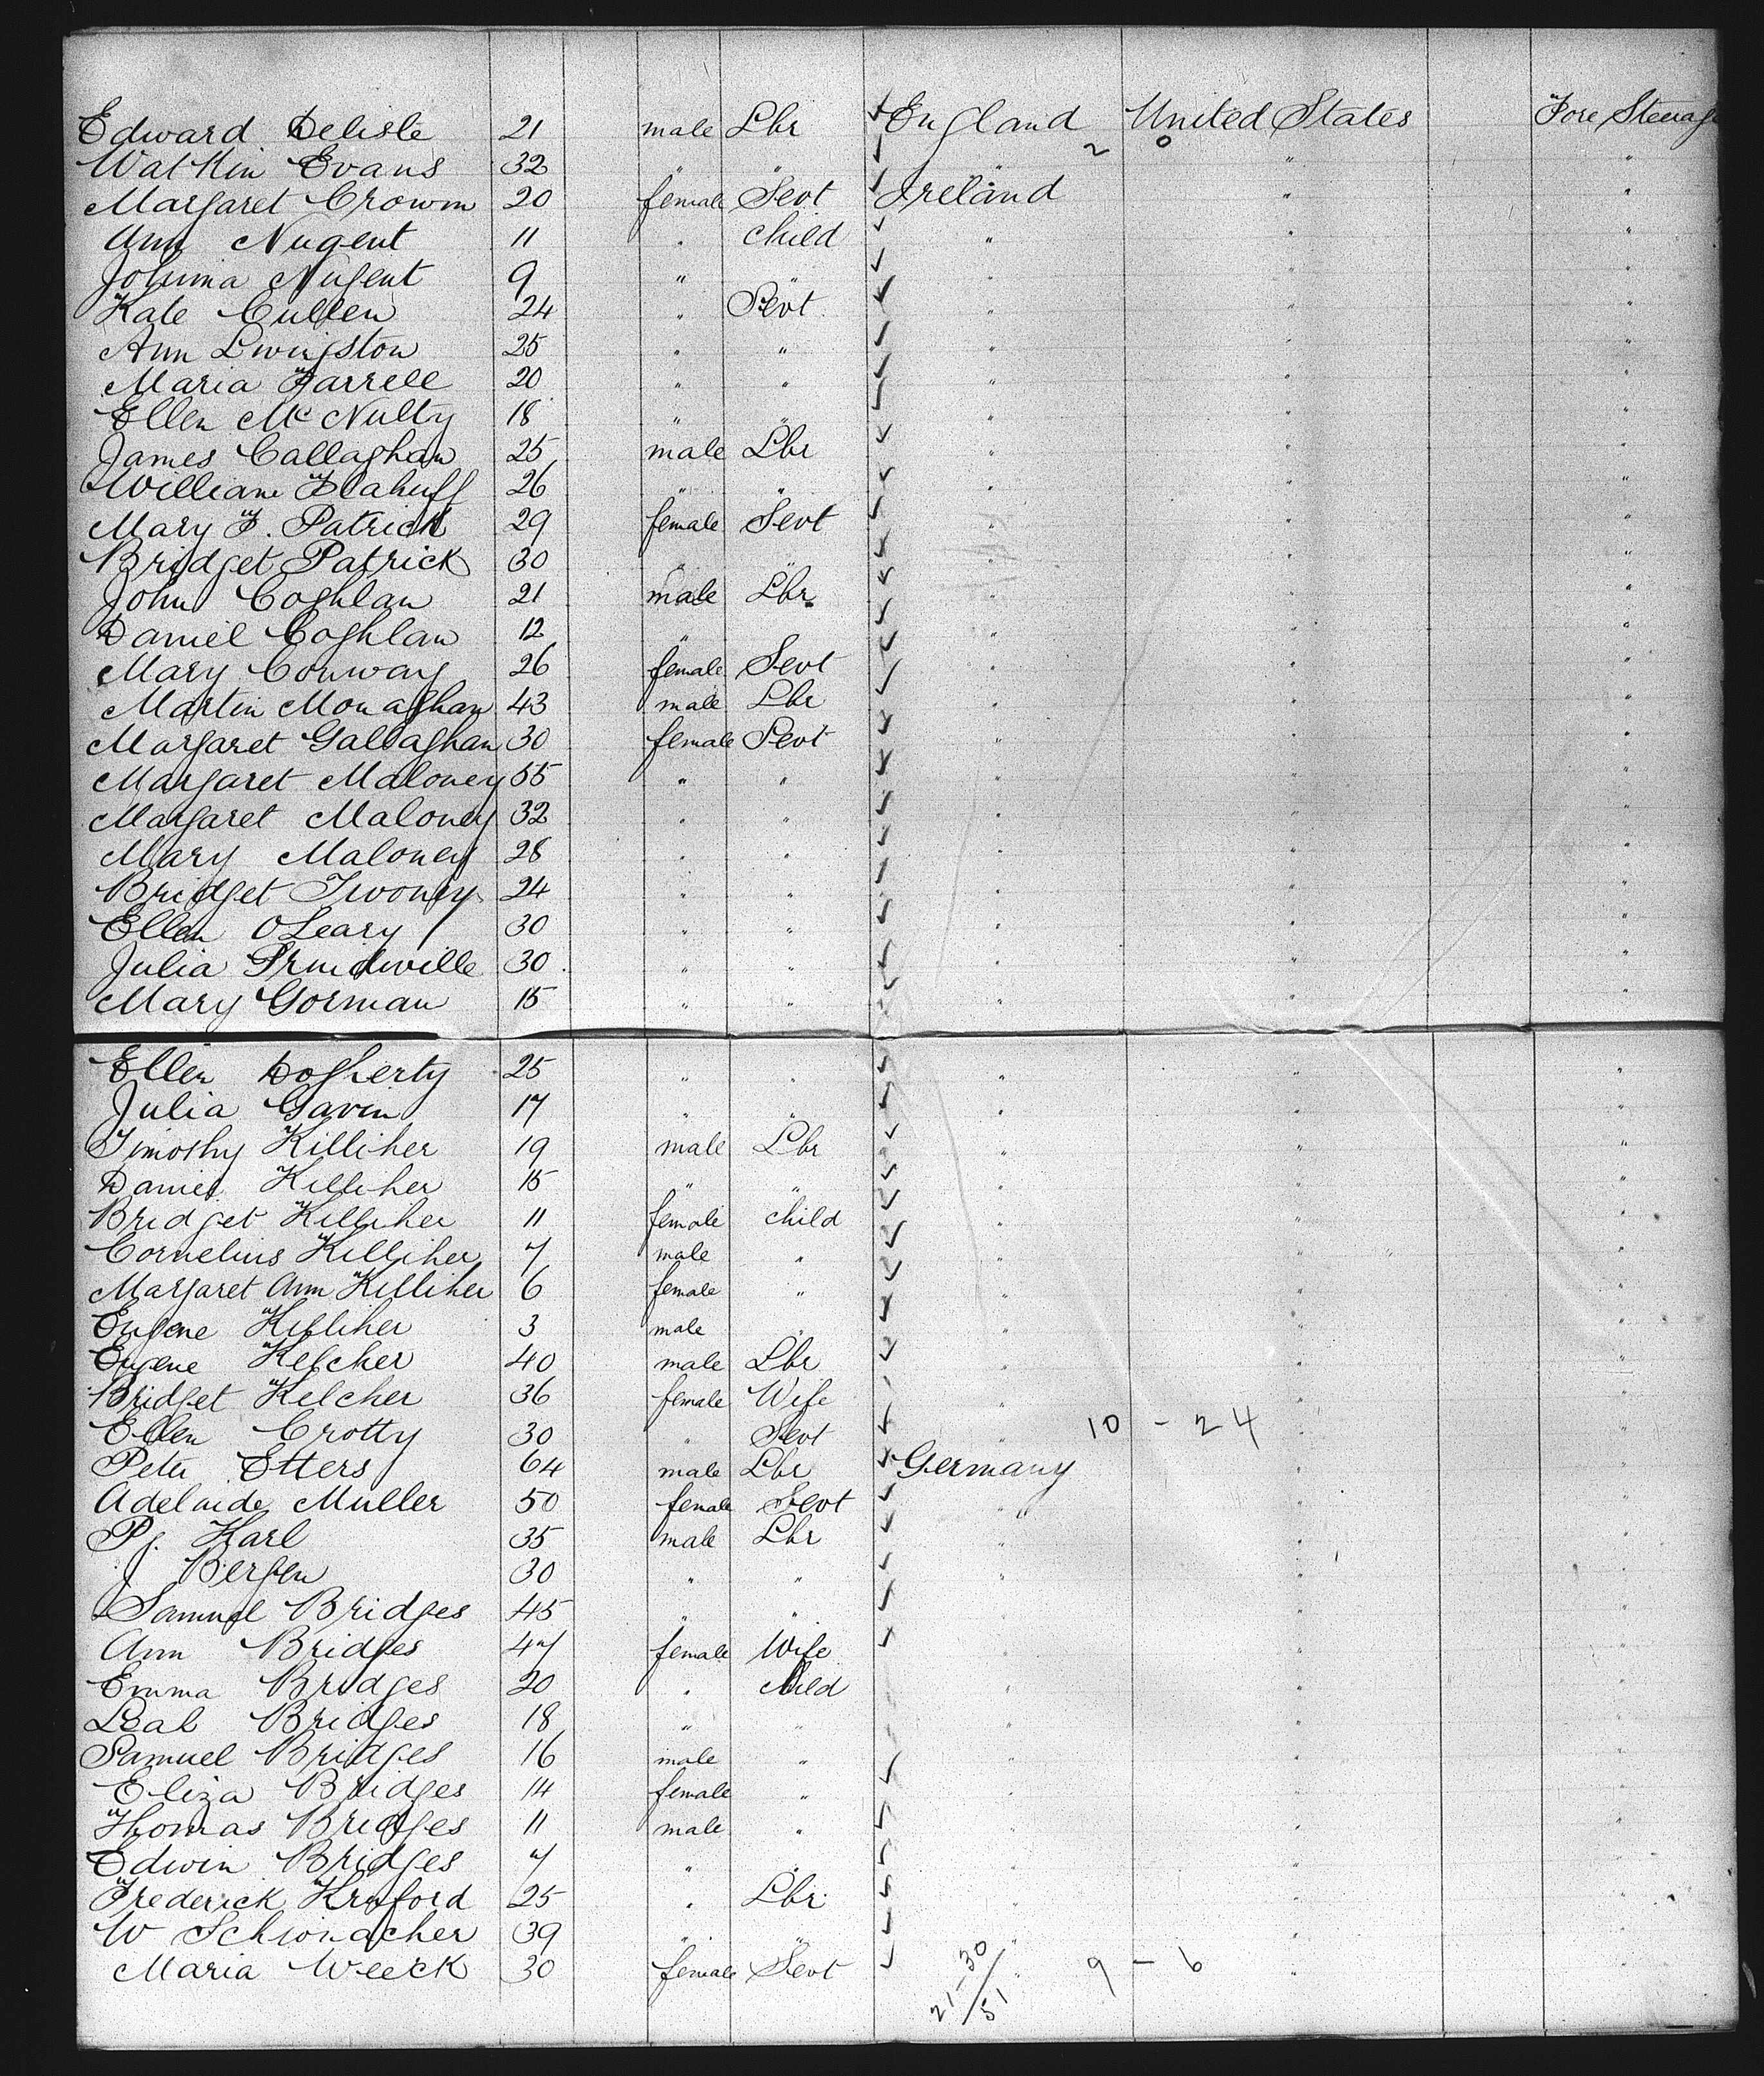 Edward Delisle 21 male Lbr England United States Fore Steerage
Watkin Evans 32 " " " 2 0 " "
Margaret Crowm 20 female Sevt Ireland " "
Ann Nugent 11 " child " " "
Johnna Nugent 9 " " " " "
Kate Cullen 24 " Sevt " " "
Ann Livingston 25 " " " " "
Maria Farrell 20 " " " " "
Ellen McNulty 18 " " " " "
James Callaghan 25 male Lbr " " "
William 26 " " " " "
Mary F. Patrick 29 female Sevt " " "
Bridget Patrick 30 " " " " "
John Coghlan 21 male Lbr " " "
Daniel Coghlan 12 " " " " "
Mary Conway 26 female Sevt " " "
Martin Monaghan 43 male Lbr " " "
Margaret Gallaghan 30 female Sevt " " "
Margaret Maloney 55 " " " " "
Margaret Maloney 32 " " " " "
Mary Maloney 28 " " " " "
Bridget Twomey 24 " " " " "
Ellen OLeary 30 " " " " "
Julia 30 " " " " "
Mary Gorman 15 " " " " "
Ellen Dogherty 25 " " " " "
Julia Gavin 17 " " " " "
Timothy Killiher 19 male Lbr " " "
Daniel Killiher 15 " " " " "
Bridget Killiher 11 female child " " "
Cornelius Killiher 7 male " " " "
Margaret Ann Killiher 6 female " " " "
Eugene Killiher 3 male " " " "
Eugene Kelcher 40 male Lbr " " "
Bridget Kelcher 36 female Wife " " "
Ellen Crotty 30 " Sevt " 10 - 24 " "
Peter Etters 64 male Lbr Germany " "
Adelaide Muller 50 female Sevt " " "
Pj. Karl 35 male Lbr " " "
J Bergen 30 " " " " "
Samuel Bridges 45 " " " " "
Ann Bridges 47 female Wife " " "
Emma Bridges 20 " child " " "
Leah Bridges 18 " " " " "
Samuel Bridges 16 male " " " "
Eliza Bridges 14 female " " " "
Thomas Bridges 11 male " " " "
Edwin Bridges 7 " " " " "
Frederick Kruford 25 " Lbr " " "
W Schwnacher 39 " " " " "
Maria Weeck 30 female Sevt " 9 - 6 " "
21-30/51